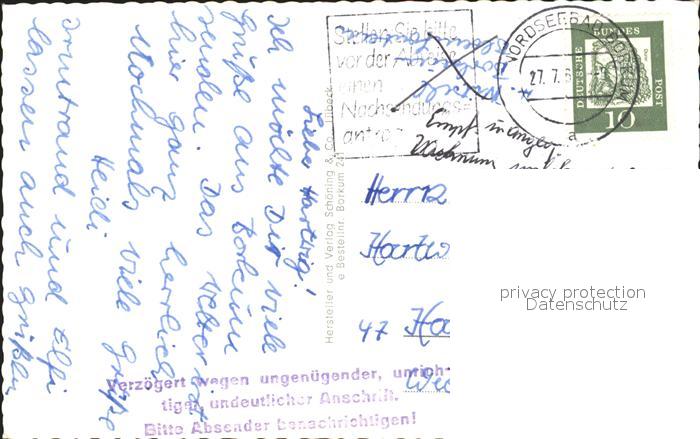 Lieber Hartwig!
Ich möchte Dir viele
Grüße aus Borkum
senden. Das Wetter ist
hier ganz herrlich
Nochmals viele Grüße
Heidi
Irmtraud und Elfi
lassen auch grüßen
Hersteller und Verlag Schöning & Co., Lübeck
Bestellnr. Borkum 24
Stellen Sie bitte
vor der Abreise
einen
Nachsendungs=
antrag
NORDSEEBAD BORKUM
27.7.6
a
DEUTSCHE BUNDES POST
10
Herrn
Hartw
47 Ha
We
privacy protection
Datenschutz
Verzögert wegen ungenügender, unrich-
tiger, undeutlicher Anschrift.
Bitte Absender benachrichtigen!